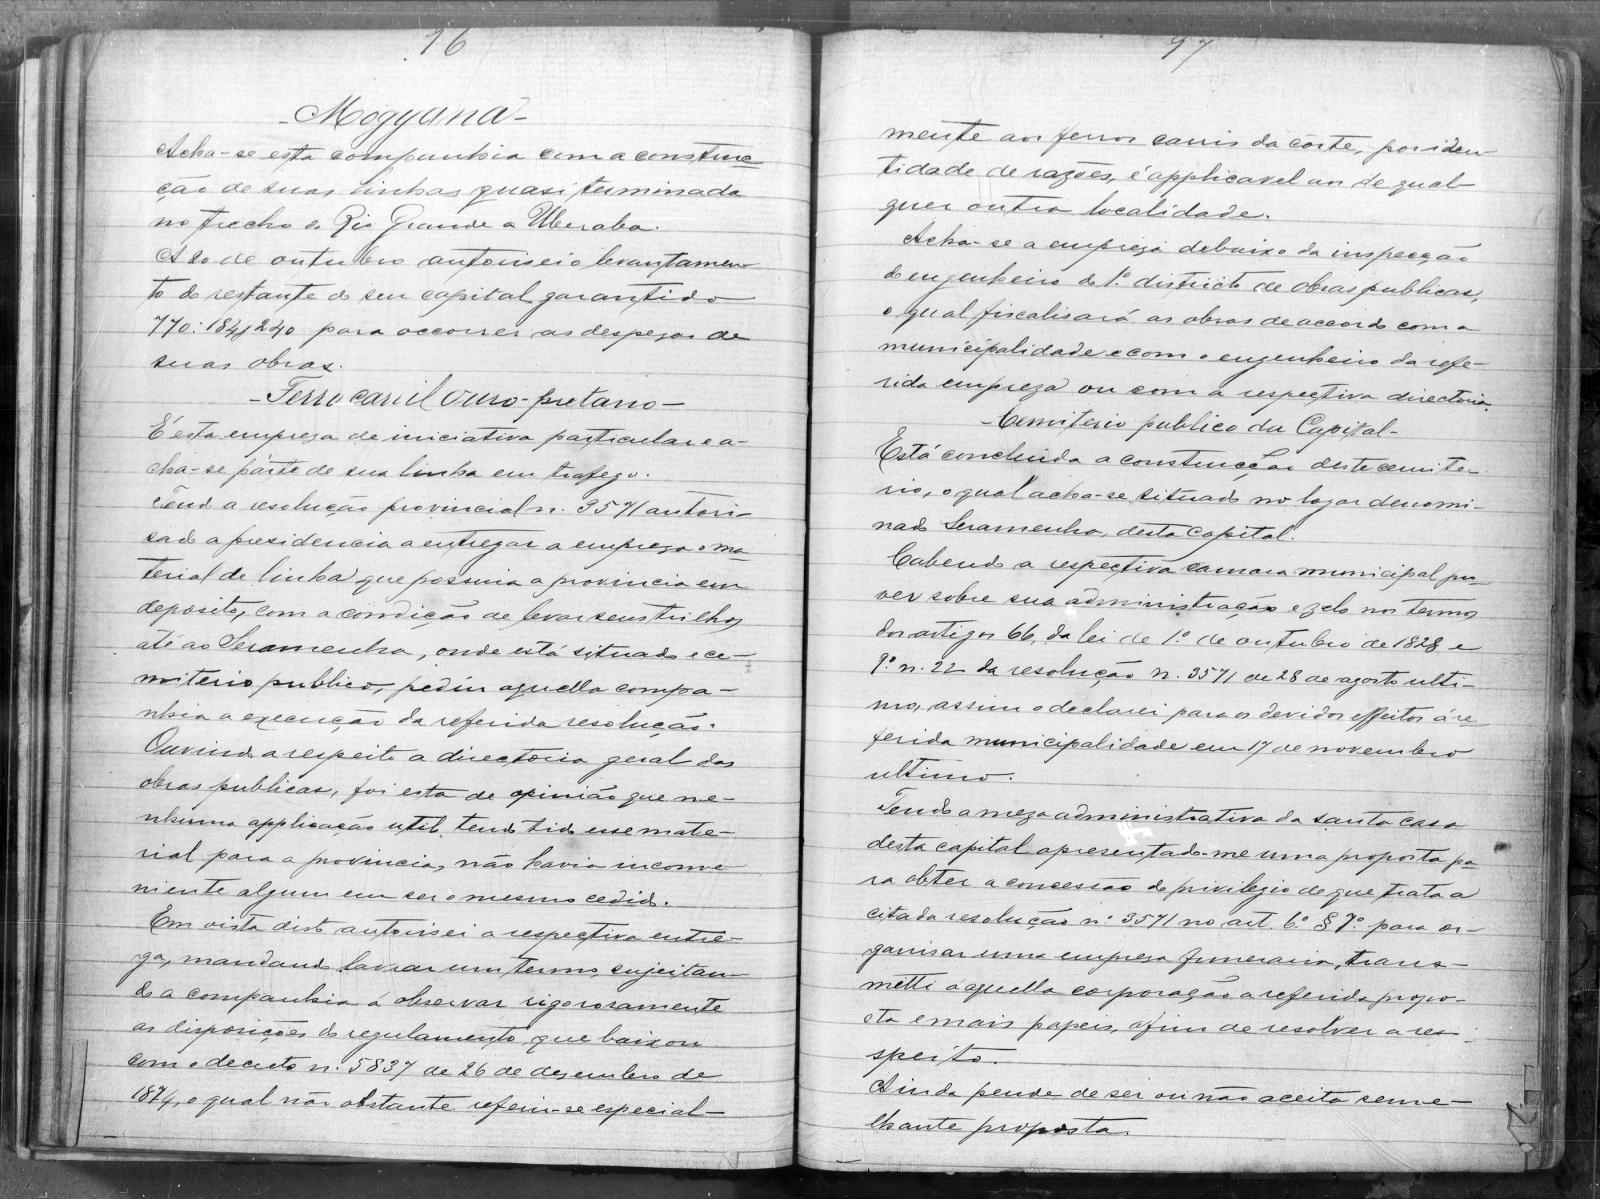 96
- Mogyana -
Acha-se esta companhia com a construc
ção de suas linhas quasi terminada
no trecho do Rio Grande a Uberaba.
A 20 de outubro autorisei o levantamen
to do restante do seu capital garantido
770:184$240 para occorrer as despezas de
suas obras.
- Ferro carril Ouro-pretano -
É esta empresa de iniciativa particular e a-
cha-se parte de sua linha em trafego.
Tendo a resolução provincial n. 3571 autori-
sado a presidencia a entregar a empresa o ma
terial de linha que possuia a provincia em
deposito, com a condição de levar seus trilhos
até ao Seramenha, onde está situado o ce-
miterio publico, pediu aquella compa-
nhia a execução da referida resolução.
Ouvindo a respeito a directoria geral das
obras publicas, foi esta de opinião que ne-
nhuma applicação util tendo tido esse mate-
rial para a provincia, não havia inconve
niente algum em ser o mesmo cedido.
Em vista disto autorisei a respectiva entre-
ga, mandando lavrar um termo, sujeitan
do a companhia á observar rigorosamente
as disposições do regulamento que baixou
com o decreto n. 5837 de 26 de dezembro de
1874, o qual não obstante referir-se especial-
97
mente aos ferros carris da côrte, por iden
tidade de razões, é applicavel aos de qual-
quer outra localidade.
Acha-se a empreza debaixo da inspecção
do engenheiro do 1.º districto de obras publicas,
o qual fiscalisará as obras de accordo com a
municipalidade e com o engenheiro da refe-
rida empreza ou com a respectiva directoria.
- Cemiterio publico da Capital -
Está concluida a construcção deste cemite-
rio, o qual acha-se situado no logar denomi-
nado Seramenha, desta capital.
Cabendo a respectiva camara municipal pro-
ver sobre sua administração e zelo nos termos
dos artigos 66, da lei de 1.º de outubro de 1828 e
9.º n. 22 da resolução n. 3571 de 28 de agosto ulti-
mo, assim o declarei para os devidos effeitos á re
ferida municipalidade em 17 de novembro
ultimo.
Tendo a meza administrativa da santa casa
desta capital apresentado-me uma proposta pa
ra obter a concessão do privilegio de que trata a
citada resolução n.º 3571 no art. 6.º § 7.º para or-
ganisar uma empresa funeraria, trans-
mitti a aquella corporação a referida propo-
sta e mais papeis, afim de resolver a res
speito.
Ainda pende de ser ou não aceita seme-
lhante proposta.